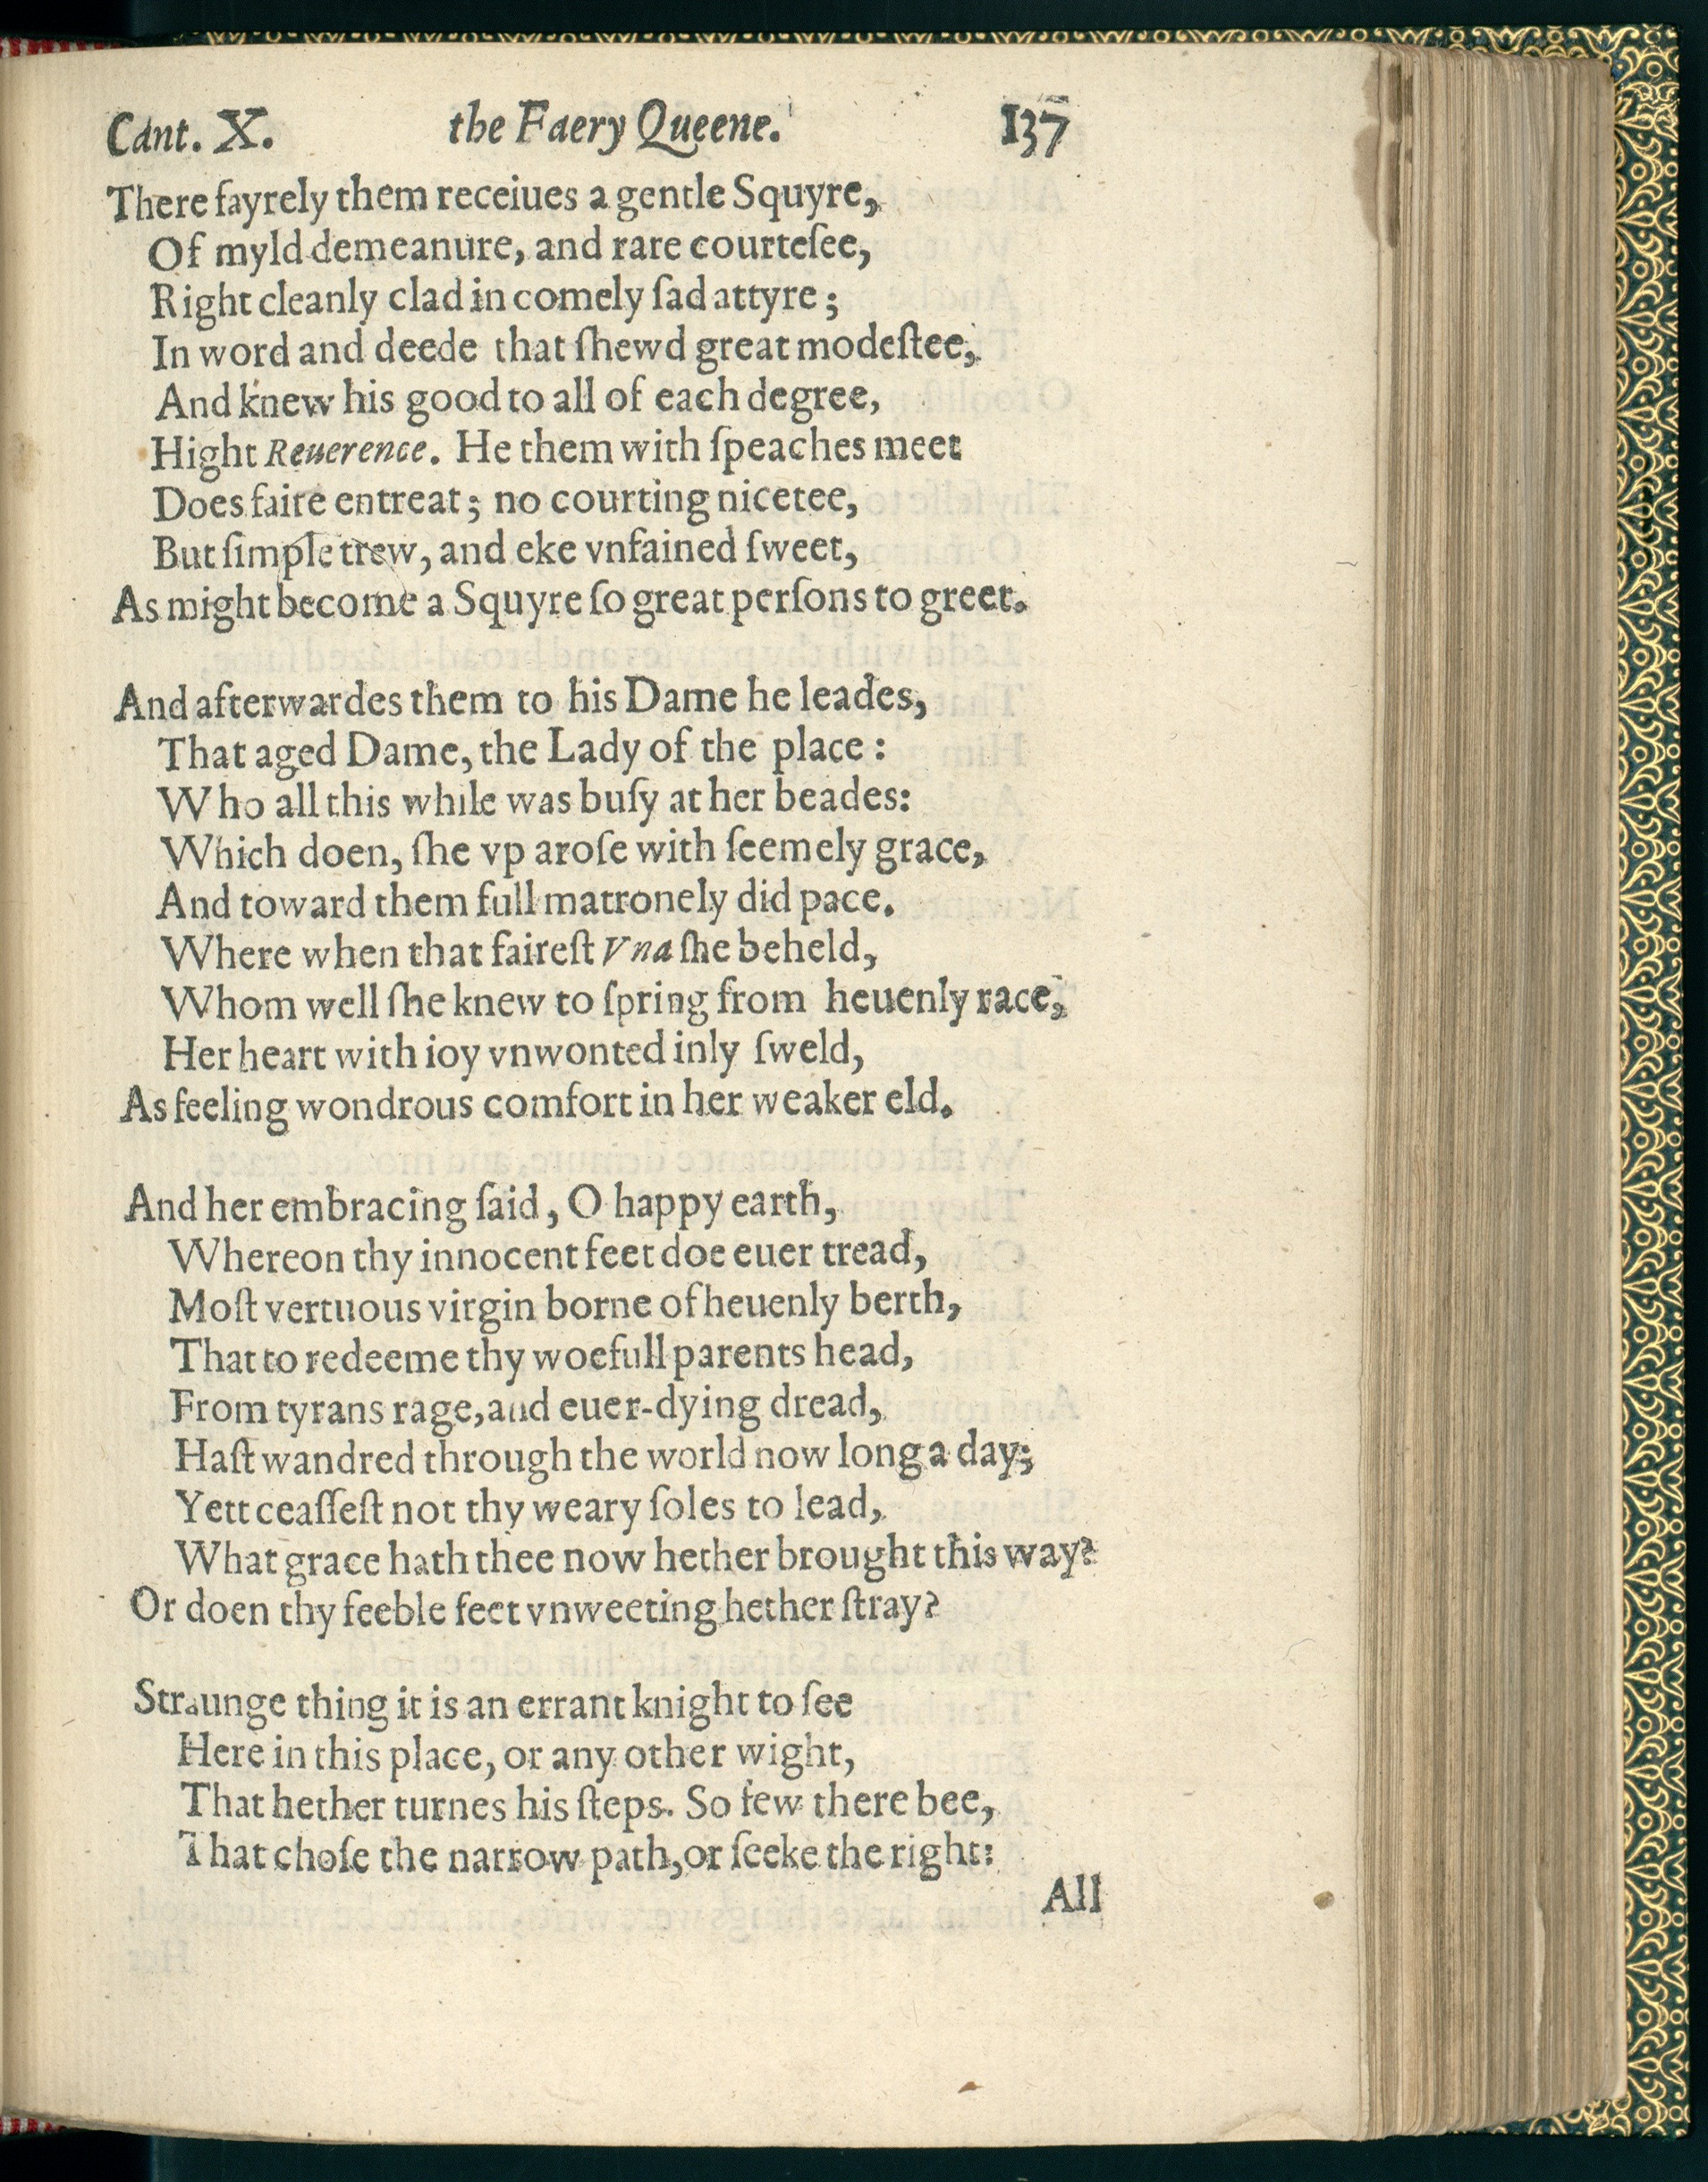 Cant. X. the Faery Queene. 137
There fayrely them receiues a gentle Squyre,
Of myld demeanure, and rare courteſee,
Right cleanly clad in comely ſad attyre;
In word and deede that ſhewd great modeſtee,
And knew his good to all of each degree,
Hight Reuerence. He them with ſpeaches meet
Does faire entreat; no courting nicetee,
But ſimple trew, and eke vnfained ſweet,
As might become a Squyre ſo great perſons to greet.
And afterwardes them to his Dame he leades,
That aged Dame, the Lady of the place:
Who all this while was buſy at her beades:
Which doen, ſhe vp aroſe with ſeemely grace,
And toward them full matronely did pace.
Where when that faireſt Vna ſhe beheld,
Whom well ſhe knew to ſpring from heuenly race,
Her heart with ioy vnwonted inly ſweld,
As feeling wondrous comfort in her weaker eld.
And her embracing ſaid, O happy earth,
Whereon thy innocent feet doe euer tread,
Moſt vertuous virgin borne of heuenly berth,
That to redeeme thy woefull parents head,
From tyrans rage, and euer-dying dread,
Haſt wandred through the world now long a day;
Yett ceaſſeſt not thy weary ſoles to lead,
What grace hath thee now hether brought this way?
Or doen thy feeble feet vnweeting hether ſtray?
Straunge thing it is an errant knight to ſee
Here in this place, or any other wight,
That hether turnes his ſteps. So few there bee,
That choſe the narrow path, or ſeeke the right:
All